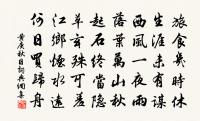 旅食幾時休
生涯未有謀
西風一夜雨
落葉萬山秋
石終當隱
草玄殊可羞
江鄉煙水遠
何日買歸舟
黃庚秋日詞典網集